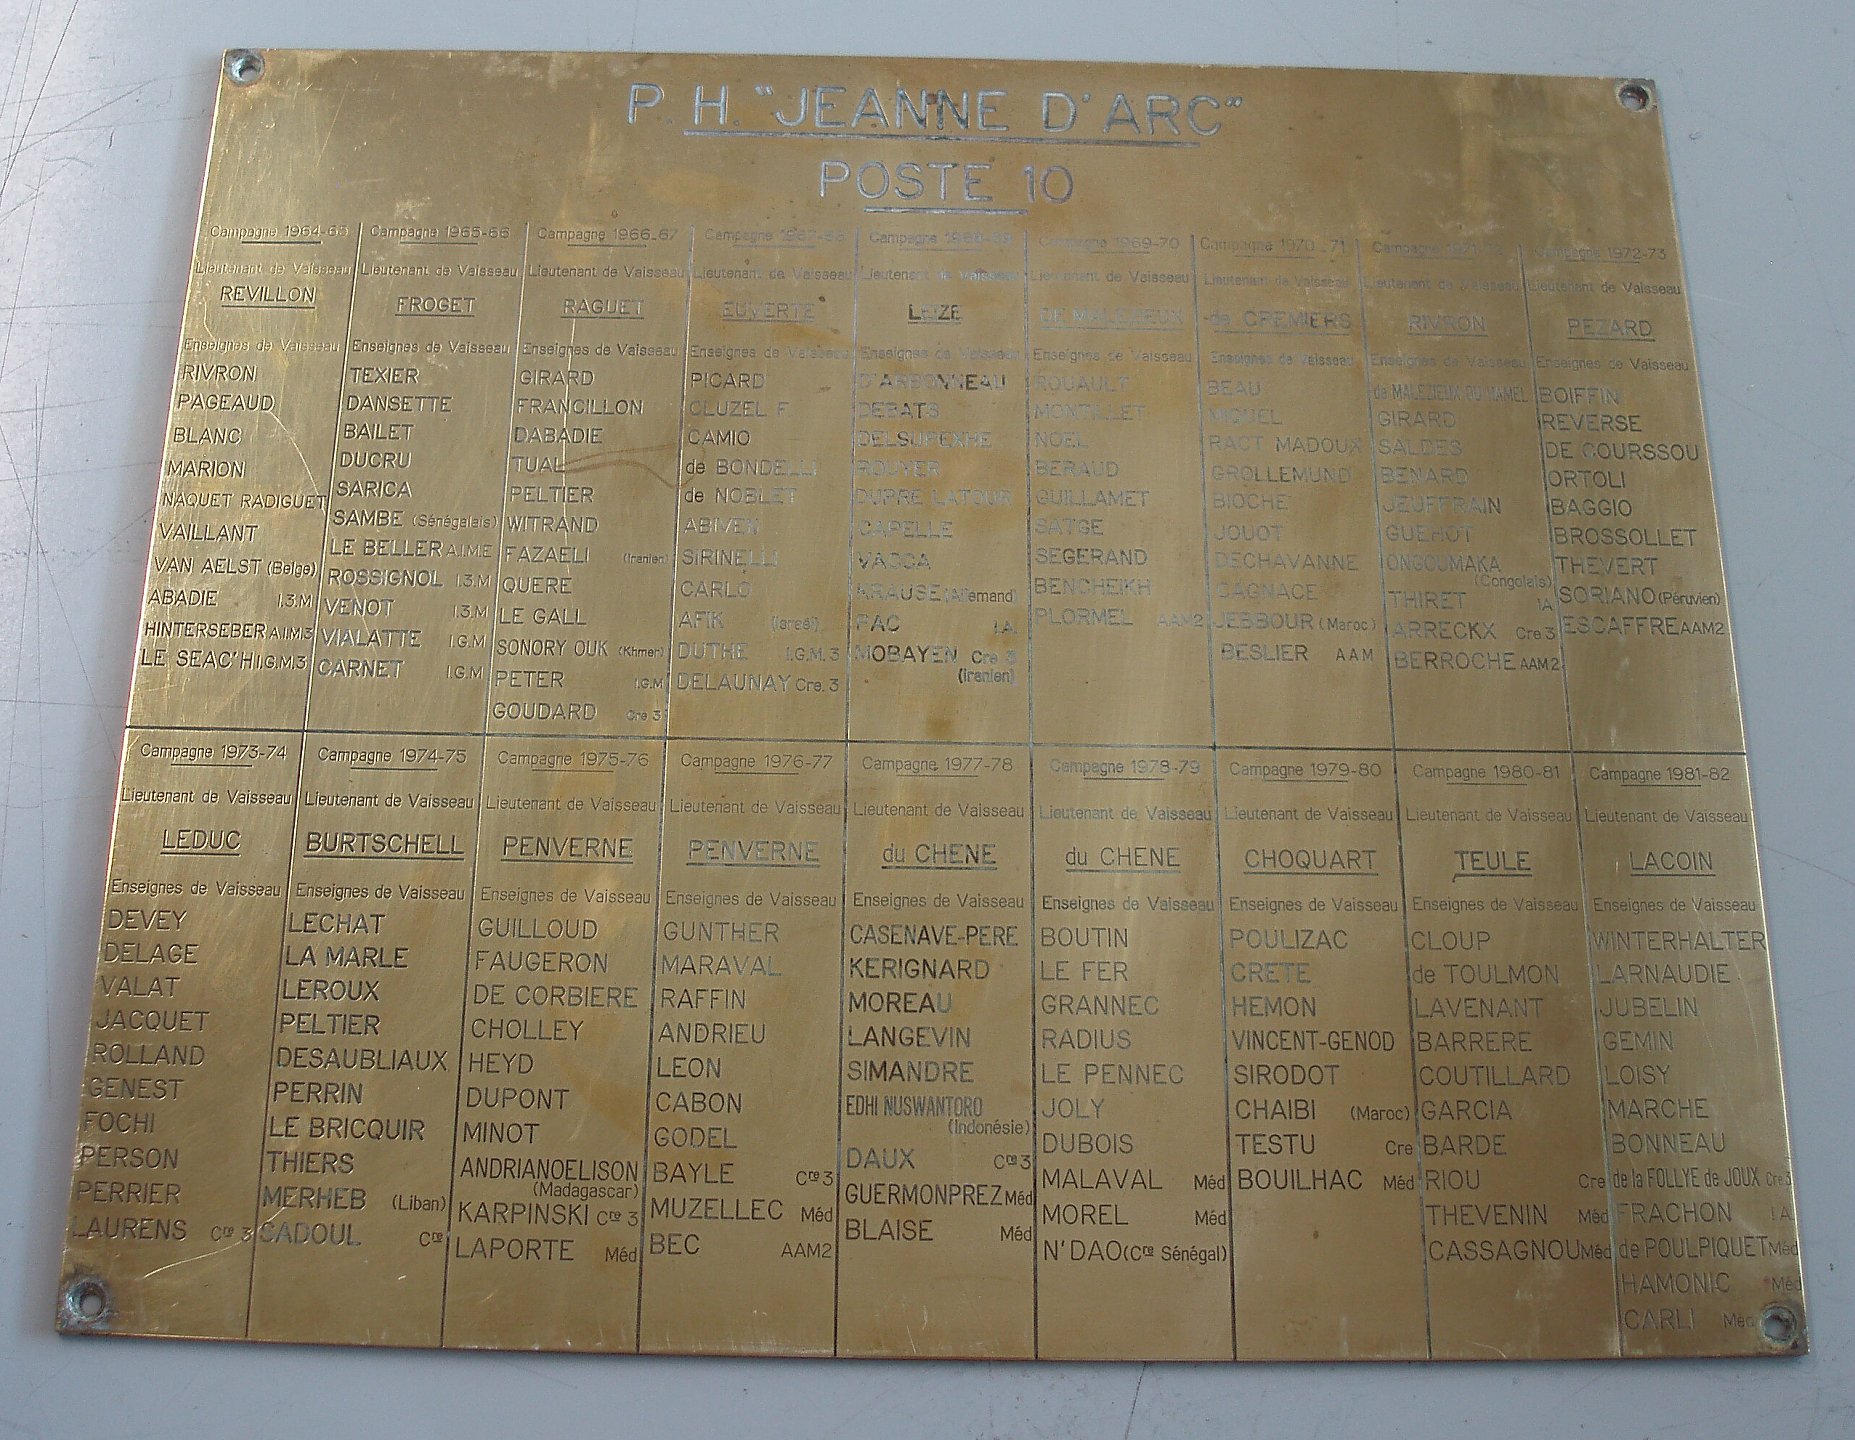 P.H. "JEANNE D'ARC"
POSTE 10
Campagne 1964-65
Lieutenant de Vaisseau
REVILLON
Enseignes de Vaisseau
RIVRON
PAGEAUD
BLANC
MARION
NAQUET RADIGUET
VAILLANT
VAN AELST (Belge)
ABADIE I.3.M
HINTERSEBER A.I.M3
LE SEAC'H I.G.M.3
Campagne 1965-66
Lieutenant de Vaisseau
FROGET
Enseignes de Vaisseau
TEXIER
DANSETTE
BAILET
DUCRU
SARICA
SAMBE (Sénégalais)
LE BELLER A.I.M.E
ROSSIGNOL I.3.M
VENOT I.3.M
VIALATTE I.G.M
CARNET I.G.M
Campagne 1966-67
Lieutenant de Vaisseau
RAGUET
Enseignes de Vaisseau
GIRARD
FRANCILLON
DABADIE
TUAL
PELTIER
WITRAND
FAZAELI (Iranien)
QUERE
LE GALL
SONORY OUK (Khmer)
PETER I.G.M
GOUDARD Cre 3
Campagne 1967-68
Lieutenant de Vaisseau
EUVERTE
Enseignes de Vaisseau
PICARD
CLUZEL F.
CAMIO
de BONDELLI
de NOBLET
ABIVEN
SIRINELLI
CARLO
AFIK (Israël)
DUTHE I.G.M.3
DELAUNAY Cre.3
Campagne 1968-69
Lieutenant de Vaisseau
LEIZE
Enseignes de Vaisseau
D'ARBONNEAU
DEBATS
DELSUPEXHE
ROUYER
DUPRE LATOUR
CAPELLE
VACCA
KRAUSE (Allemand)
PAC I.A.
MOBAYEN Cre 3
(Iranien)
Campagne 1969-70
Lieutenant de Vaisseau
DE MALEZIEUX
Enseignes de Vaisseau
ROUAULT
MONTILLET
NOEL
BERAUD
GUILLAMET
SATGE
SEGERAND
BENCHEIKH
PLORMEL AAM2
Campagne 1970-71
Lieutenant de Vaisseau
de CREMIERS
Enseignes de Vaisseau
BEAU
MIQUEL
RACT MADOUX
GROLLEMUND
BIOCHE
JOUOT
DECHAVANNE
GAGNACE
JEBBOUR (Maroc)
BESLIER AAM
Campagne 1971-72
Lieutenant de Vaisseau
RIVRON
Enseignes de Vaisseau
de MALEZIEUX DU HAMEL
GIRARD
SALDES
BENARD
JEUFFRAIN
GUEHOT
ONGOUMAKA
(Congolais)
THIRET IA
ARRECKX Cre 3
BERROCHE AAM2
Campagne 1972-73
Lieutenant de Vaisseau
PEZARD
Enseignes de Vaisseau
BOIFFIN
REVERSE
DE COURSSOU
ORTOLI
BAGGIO
BROSSOLLET
THEVERT
SORIANO (Péruvien)
ESCAFFRE AAM2
Campagne 1973-74
Lieutenant de Vaisseau
LEDUC
Enseignes de Vaisseau
DEVEY
DELAGE
VALAT
JACQUET
ROLLAND
GENEST
FOCHI
PERSON
PERRIER
LAURENS Cre 3
Campagne 1974-75
Lieutenant de Vaisseau
BURTSCHELL
Enseignes de Vaisseau
LECHAT
LA MARLE
LEROUX
PELTIER
DESAUBLIAUX
PERRIN
LE BRICQUIR
THIERS
MERHEB (Liban)
CADOUL Cre
Campagne 1975-76
Lieutenant de Vaisseau
PENVERNE
Enseignes de Vaisseau
GUILLOUD
FAUGERON
DE CORBIERE
CHOLLEY
HEYD
DUPONT
MINOT
ANDRIANOELISON
(Madagascar)
KARPINSKI Cre 3
LAPORTE Méd
Campagne 1976-77
Lieutenant de Vaisseau
PENVERNE
Enseignes de Vaisseau
GUNTHER
MARAVAL
RAFFIN
ANDRIEU
LEON
CABON
GODEL
BAYLE Cre 3
MUZELLEC Méd
BEC AAM2
Campagne 1977-78
Lieutenant de Vaisseau
du CHENE
Enseignes de Vaisseau
CASENAVE-PERE
KERIGNARD
MOREAU
LANGEVIN
SIMANDRE
EDHI NUSWANTORO
(Indonésie)
DAUX Cre 3
GUERMONPREZ Méd
BLAISE Méd
Campagne 1978-79
Lieutenant de Vaisseau
du CHENE
Enseignes de Vaisseau
BOUTIN
LE FER
GRANNEC
RADIUS
LE PENNEC
JOLY
DUBOIS
MALAVAL Méd
MOREL Méd
N'DAO (Cre Sénégal)
Campagne 1979-80
Lieutenant de Vaisseau
CHOQUART
Enseignes de Vaisseau
POULIZAC
CRETE
HEMON
VINCENT-GENOD
SIRODOT
CHAIBI (Maroc)
TESTU Cre
BOUILHAC Méd
Campagne 1980-81
Lieutenant de Vaisseau
TEULE
Enseignes de Vaisseau
CLOUP
de TOULMON
LAVENANT
BARRERE
COUTILLARD
GARCIA
BARDE
RIOU Cre
THEVENIN Méd
CASSAGNOU Méd
Campagne 1981-82
Lieutenant de Vaisseau
LACOIN
Enseignes de Vaisseau
WINTERHALTER
LARNAUDIE
JUBELIN
GEMIN
LOISY
MARCHE
BONNEAU
de la FOLLYE de JOUX Cre3
FRACHON I A
de POULPIQUET Méd
HAMONIC Méd
CARLI Méd